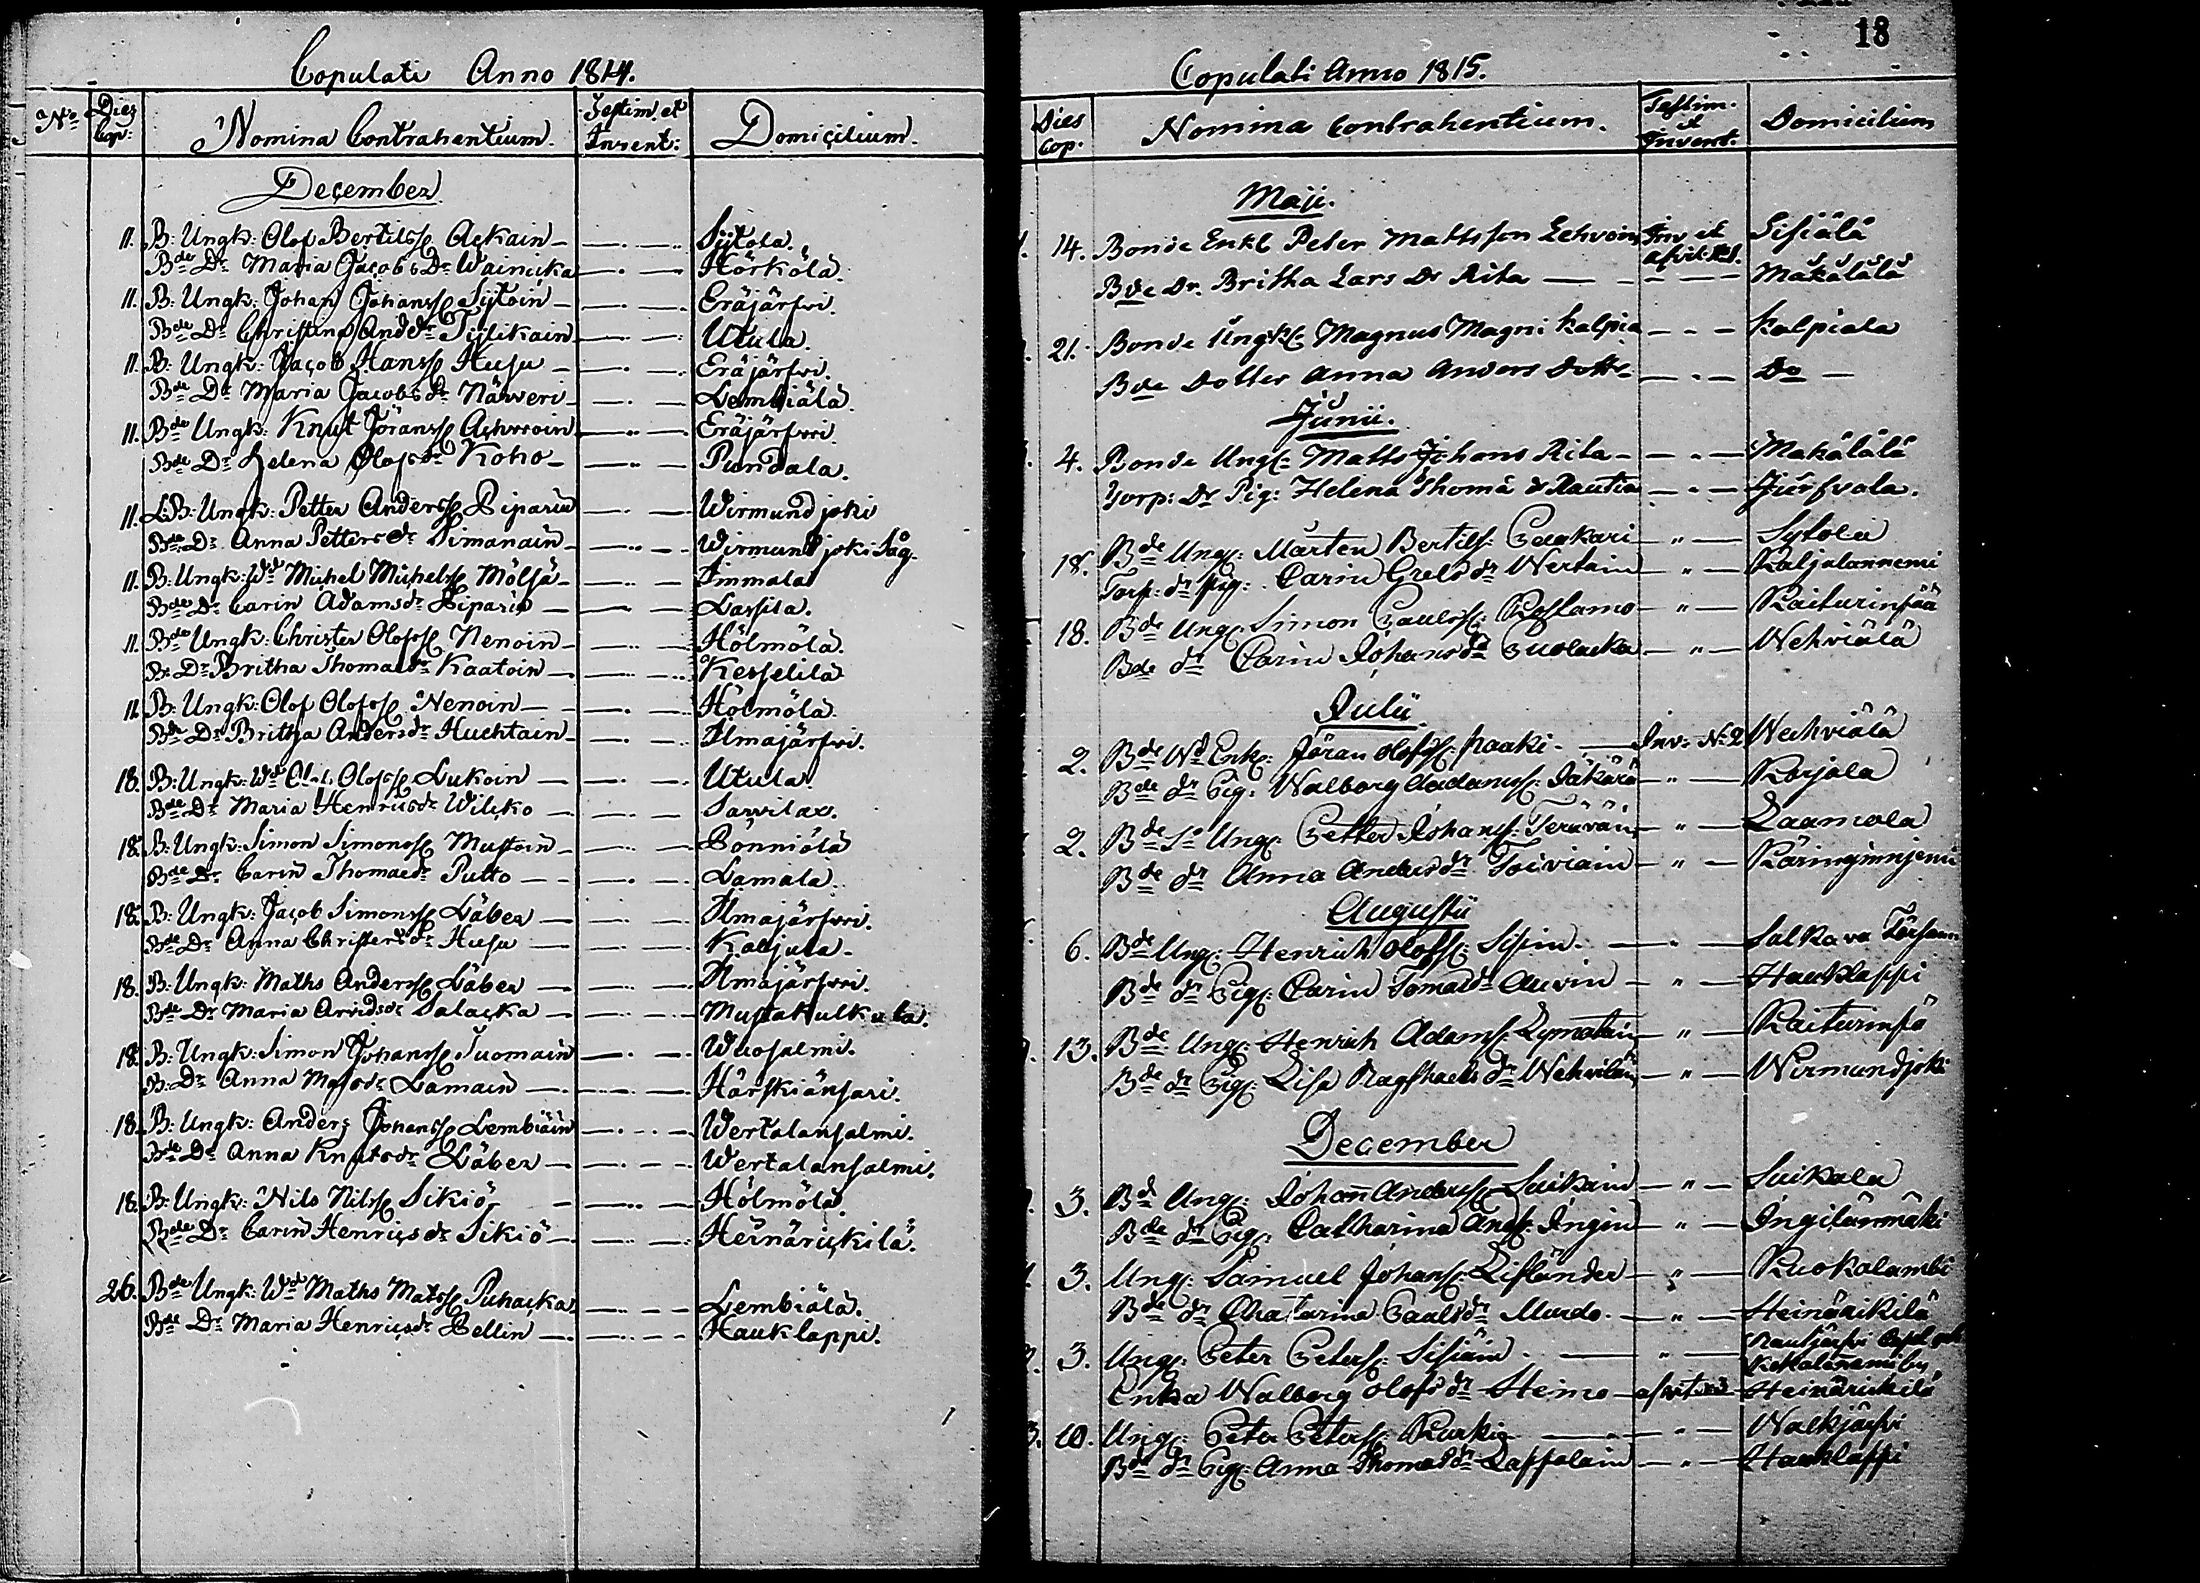 Copulati Anno 1814.
No Dies Cop: Nomina Contrahentium. Testim. et Invent: Domicilium.
December
11. B: Ungk: Olof Bertilss Ackain — Sytola.
Bde Dr Maria Jacobs Dr Wainicka — Hörkölä.
11. B: Ungk: Johan Johanss Sytoin — Eräjärfvi.
Bde Dr Christina And dr Tiilikain — Utula.
11. B: Ungk: Jacob Hanss Husu — Eräjärfvi.
Bde Dr Maria Jacobs dr Närveri — Lembiälä.
11. Bde Ungk: Knut Jöranss Achvoin — Eräjärfvi
Bde Dr Helena Olofs dr Koho — Pundala.
11. L:B: Ungk: Petter Anderss Riparin — Wirmundjoki
Bde Dr Anna Petters dr Simanain — Wirmundjoki Såg.
11. B: Ungk: Wd Michel Michelss Mölsä — Immala
Bde Dr Carin Adams dr Riparin — Lassila.
11. Bde Ungk: Christer Olofss Nenoin — Hölmölä.
B: Dr Britha Thomae dr Kaatoin — Kesselilä
11. B: Ungk: Olof Olofss Nenoin — Hölmölä.
Bde Dr Britha Anders dr Huchtain — Ilmajärfvi.
18. B: Ungk: Wd Olofss Lukoin — Utula.
Bde Dr Maria Henrics dr Wilcko — Sarvilax.
18. B: Ungk: Simon Simonss Mustoin — Pönniölä
Bde Dr Carin Thomae dr Putto — Lamala.
18. B: Ungk: Jacob Simonss Läber — Ilmajärfvi.
Bde Dr Anna Christers dr Husu — Kaljula.
18. B: Ungk: Maths Anderss Läber — Ilmajärfvi.
Bde Dr Maria Arvids dr Salacka — Mustakulkula.
18. B: Ungk: Simon Johanss Tuomain — Wuosalmi.
B: Dr Anna Mats dr Lamain — Härskiänsari.
18. B: Ungk: Anders Johanss Lembiäin — Wertalansalmi.
Bde Dr Anna Knuts dr Läber — Wertalansalmi.
18. B: Ungk: Nils Nilss Sikiö — Hölmölä.
Bde Dr Carin Henrics dr Sikiö — Heinärickilä.
26. Bde Ungk: Wd Maths Matss Puhacka — Lembiälä.
Bde Dr Maria Henrics dr Pellin — Hauklappi.
18
Copulati Anno 1815.
Dies Cop. Nomina Contrahentium. Testim. et Invent. Domicilium
Maji.
14. Bonde Enkl Peter Mattsson Lehvoin Inv et Sisiälä
Bde Dr. Britha Lars Dr Rita — Mäkälälä
21. Bonde Ungkl: Magnus Magni Kalpia — Kalpiala
Bde Dotter Anna Anders Dottr — Do —
Junii.
4. Bonde Ungk: Matts Johans Rita — Makälälä
Torp: Dr Pig: Helena Thomä dr Rautia — Jurfvala.
18. Bde Ungk: Mårten Bertils: Paakari — " — Sytola
Torp: dr pig: Carin Grels dr Wertain — " — Kaljalannemi
18. Bde Ungk: Simon Paulss: Koslamo — " — Raiturinpää
Bde dr Carin Johans dr Puolacka — " — Wehviälä
Julii.
2. Bde Wd Enk: Jöran Olofss: Paaki — Inv: No 2 Wechviälä
Bde dr Pig: Walborg Aadams: Jäkärä — " — Korjala
2. Bde So Ung: Petter Johans: Teräväin — " — Laamala
Bde dr Anna Anders dr Toiviain — " —
Augusti
6. Bde Ung: Henrich Olofs: Sisin — Salkava
Bde dr Pig: Carin Tomas dr Auvin — " — Hauklappi
13. Bde Ung: Henrich Adams: Lymatain — " — Raiturinpä
Bde dr Pig: Lisa Ragshaels dr Wehviläin — " — Wirmundjoki
December
3. Bd Ung: Johan Anderss: Suikain — " — Suikala
Bde dr Pig: Catharina Ands: Ingin — " — Ingilänmäki
3. Ung: Samuel Johans: Lifländer — " — Ruokolambi
Bde dr Chatarina Paals dr Mursto — " — Heinärikilä
3. Ung: Peter Peterss: Sisiäin — " — Rautjärfvi Capel
Kokkolänemi by
Enka Walborg Olofs dr Heimo — Heinärickilä
10. Ung: Peter Peterss: Kurki — Walkjärfvi
Bde dr Pig: Anna Thomas dr Lappalain — " — Hauklappi